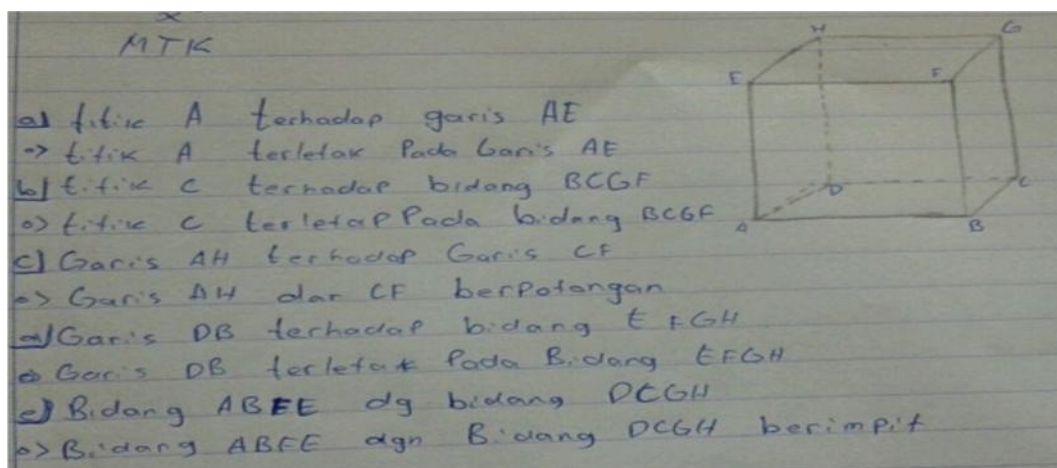 MTK
a) titik A terhadap garis AE
=> titik A terletak Pada Garis AE
b) titik C terhadap bidang BCGF
=> titik C terletap Pada bidang BCGF
c) Garis AH terhadap Garis CF
=> Garis AH dar CF berpotongan
d) Garis DB terhadap bidang EFGH
=> Garis DB terletak Pada Bidang EFGH
e) Bidang ABEE dg bidang DCGH
=> Bidang ABFE dgn Bidang DCGH berimpit
H G
E F
D C
A B